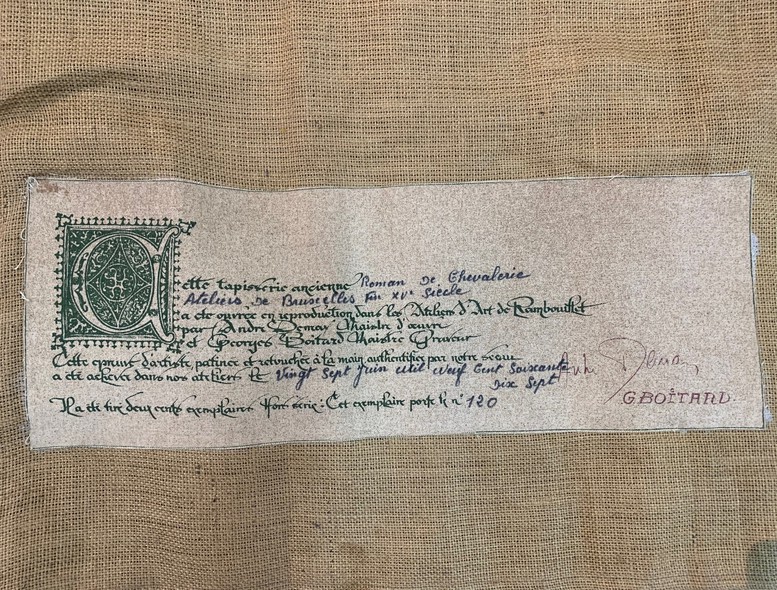 Cette tapisserie ancienne Roman De Chevalerie
Ateliers De Bruxelles Fin XVe Siecle
a été ouvrée en reproduction dans les Ateliers d'Art de Rambouillet
par André Demay Maistre d'œuvre
et Georges Boitard Maistre Graveur
Cette épreuve d'artiste, patinée et retouchée à la main authentifiée par notre sceau
a été achevée dans nos ateliers LE Vingt Sept Juin Mil Neuf Cent Soixante
Dix Sept
Il a été tiré deux cents exemplaires Hors série : Cet exemplaire porte le n° 120
G.BOÎTARD.